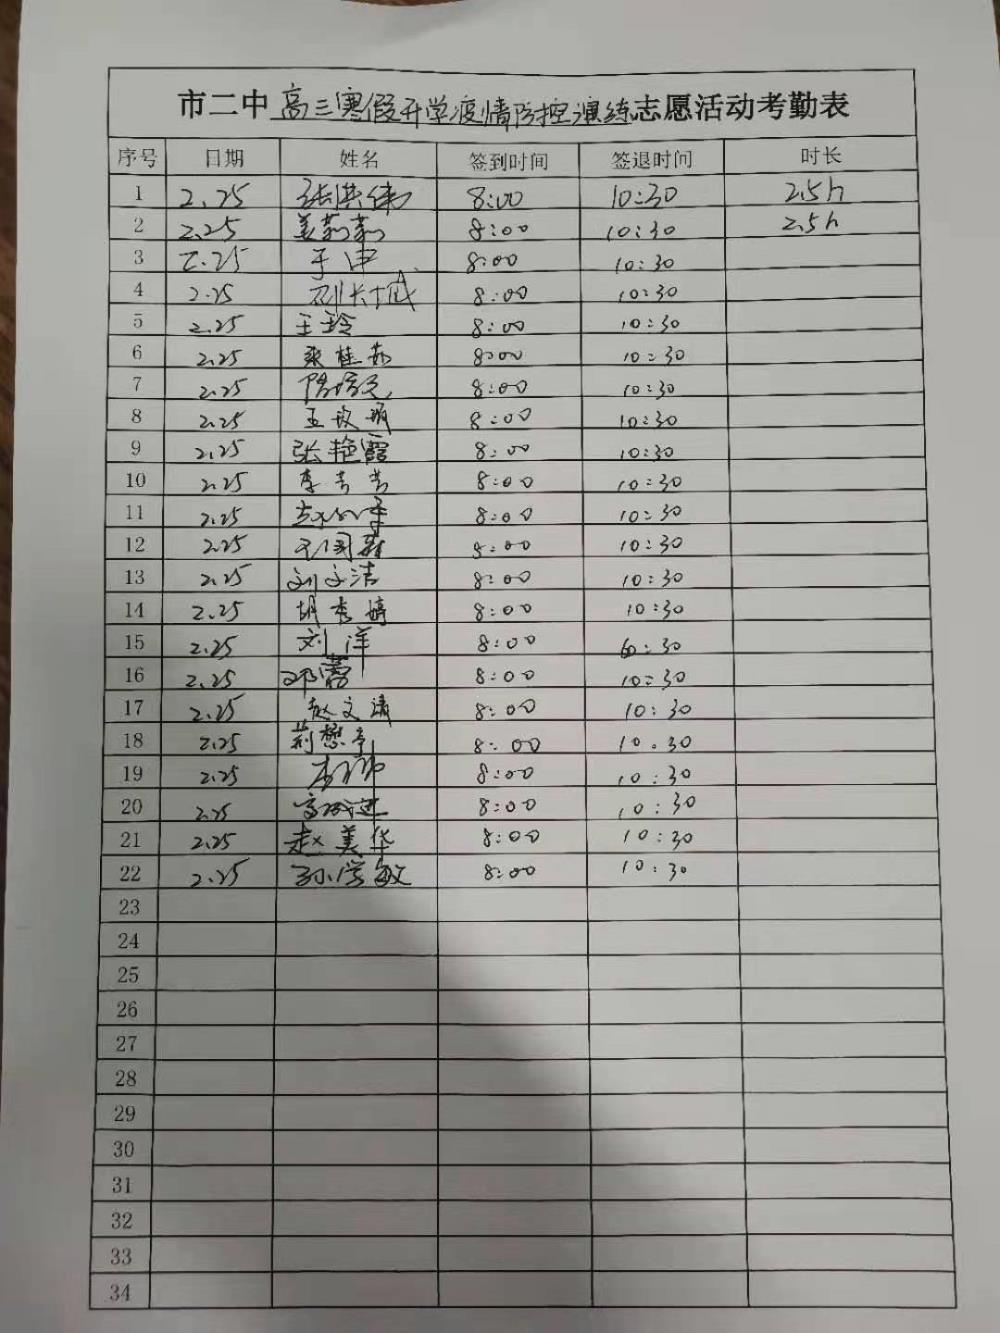 市二中高三寒假开学疫情防控演练志愿活动考勤表
序号 日期 姓名 签到时间 签退时间 时长
1 2.25 张洪伟 8:00 10:30 2.5h
2 2.25 姜莉莉 8:00 10:30 2.5h
3 2.25 于申 8:00 10:30
4 2.25 8:00 10:30
5 2.25 王玲 8:00 10:30
6 2.25 桂茹 8:00 10:30
7 2.25 8:00 10:30
8 2.25 8:00 10:30
9 2.25 张艳霞 8:00 10:30
10 2.25 李芳芳 8:00 10:30
11 2.25 8:00 10:30
12 2.25 8:00 10:30
13 2.25 刘文洁 8:00 10:30
14 2.25 胡秀婷 8:00 10:30
15 2.25 刘洋 8:00 :30
16 2.25 邓 8:00 10:30
17 2.25 赵文靖 8:00 10:30
18 2.25 荆懋 8:00 10.30
19 2.25 李玮 8:00 10:30
20 2.25 8:00 10:30
21 2.25 赵美华 8:00 10:30
22 2.25 孙学敏 8:00 10:30
23
24
25
26
27
28
29
30
31
32
33
34